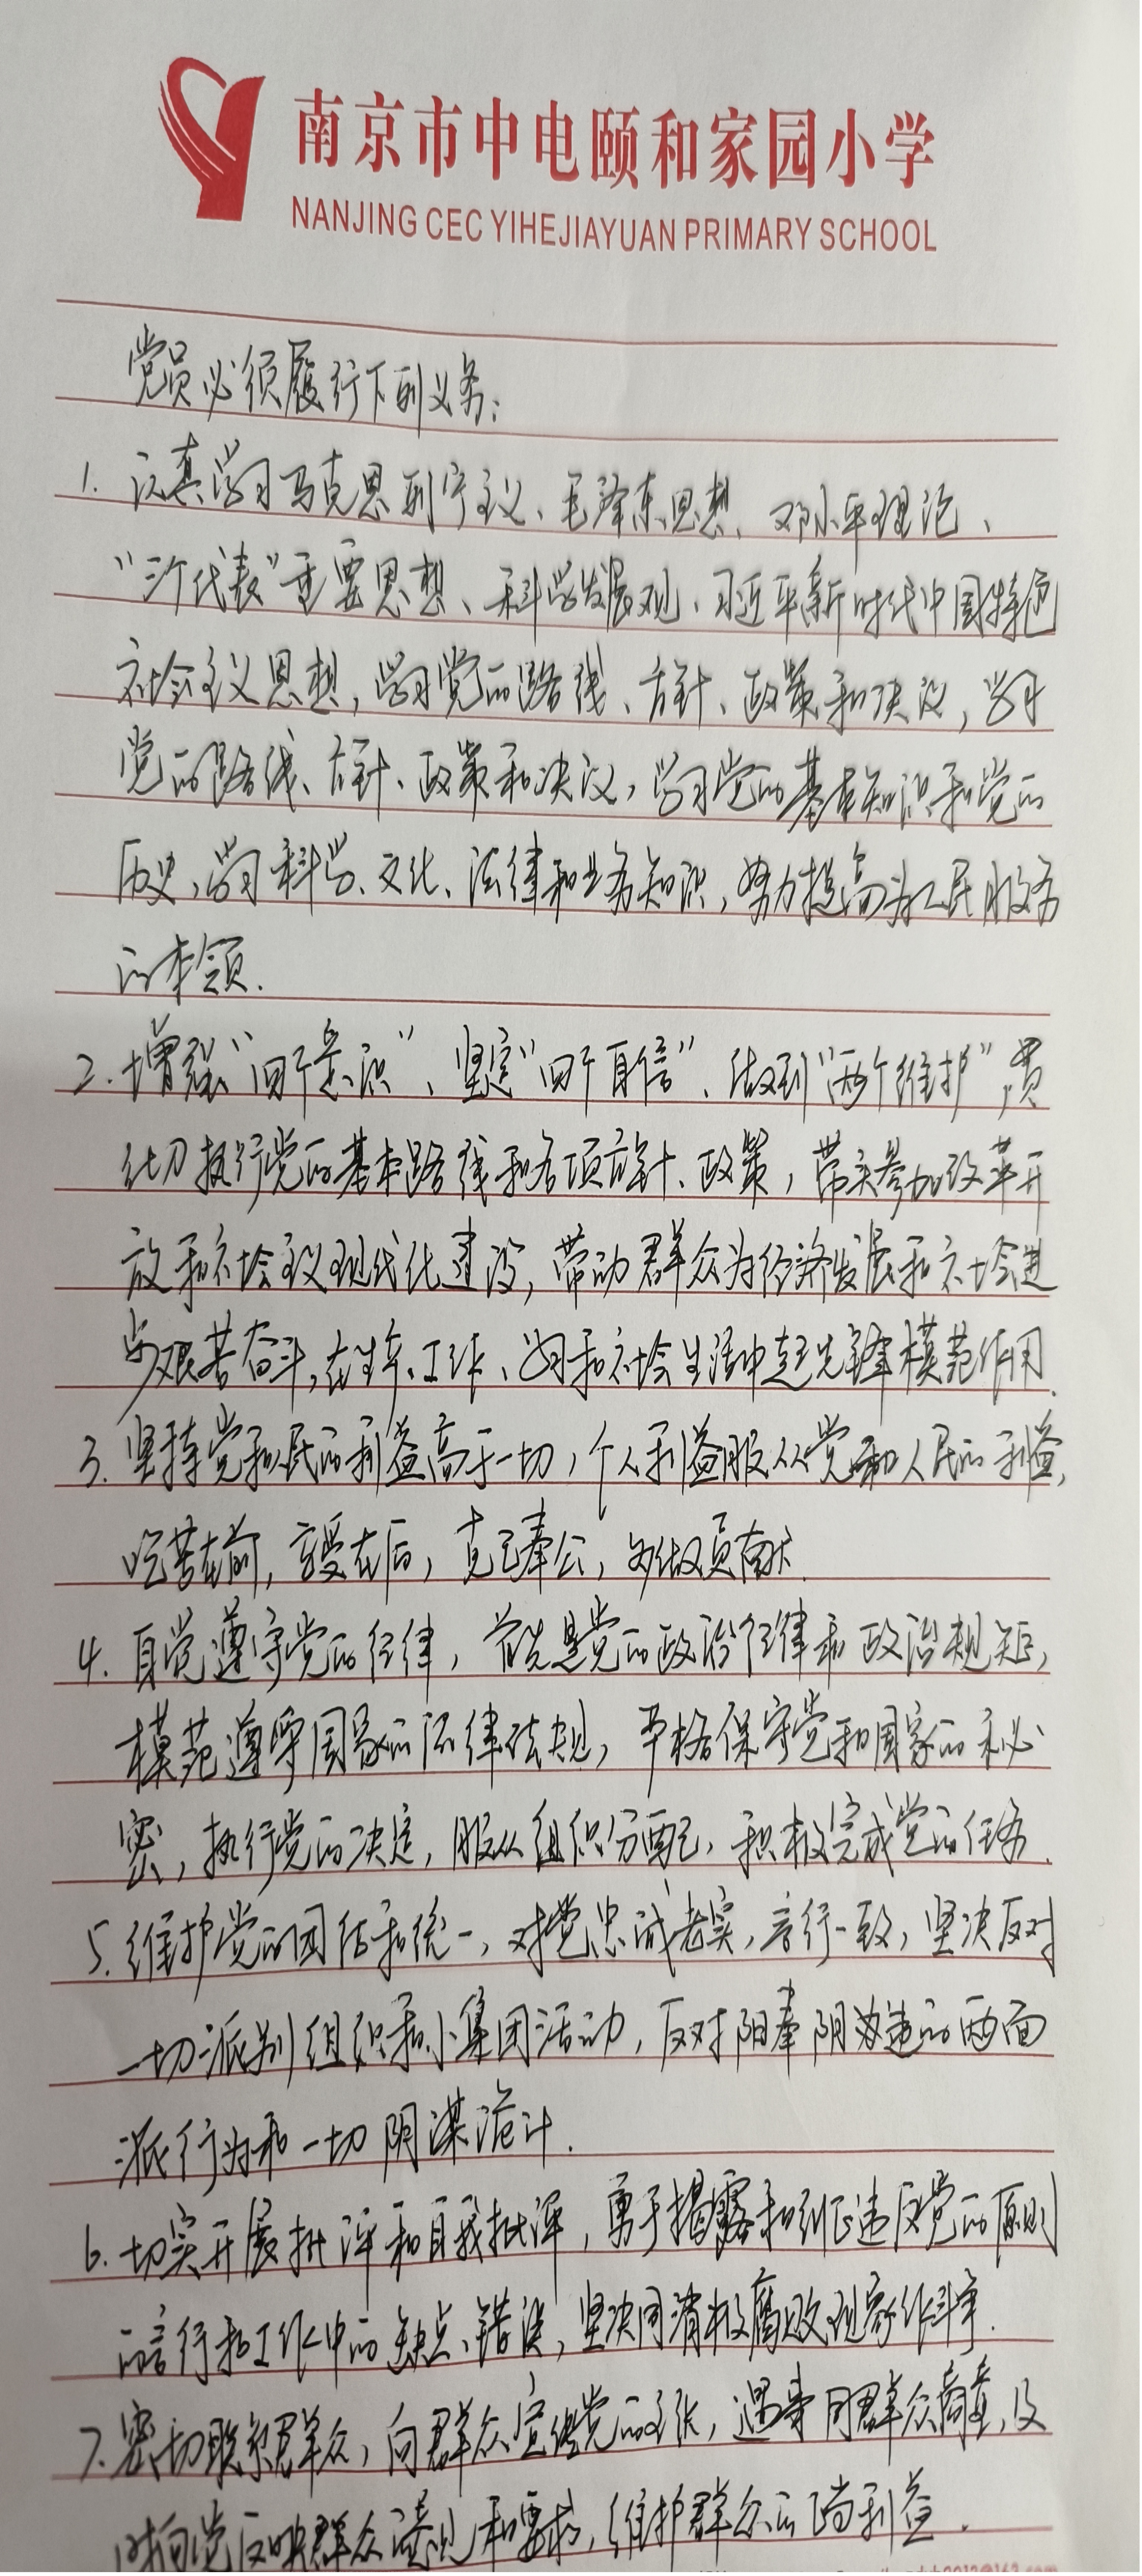 南京市中电颐和家园小学
NANJING CEC YIHEJIAYUAN PRIMARY SCHOOL
党员必须履行下列义务：
1. 认真学习马克思列宁主义、毛泽东思想、邓小平理论、
“三个代表”重要思想、科学发展观、习近平新时代中国特色
社会主义思想，学习党的路线、方针、政策和决议，学习
党的路线、方针、政策和决议，学习党的基本知识和党的
历史，学习科学、文化、法律和业务知识，努力提高为人民服务
的本领.
2. 增强“四个意识”、坚定“四个自信”、做到“两个维护”，贯
彻执行党的基本路线和各项方针、政策，带头参加改革开
放和社会主义现代化建设，带动群众为经济发展和社会进
步艰苦奋斗，在生产、工作、学习和社会生活中起先锋模范作用.
3. 坚持党和人民的利益高于一切，个人利益服从党和人民的利益，
吃苦在前，享受在后，克己奉公，多做贡献.
4. 自觉遵守党的纪律，首先是党的政治纪律和政治规矩，
模范遵守国家的法律法规，严格保守党和国家的秘
密，执行党的决定，服从组织分配，积极完成党的任务.
5. 维护党的团结和统一，对党忠诚老实，言行一致，坚决反对
一切派别组织和小集团活动，反对阳奉阴违的两面
派行为和一切阴谋诡计.
6. 切实开展批评和自我批评，勇于揭露和纠正违反党的原则
的言行和工作中的缺点、错误，坚决同消极腐败现象作斗争.
7. 密切联系群众，向群众宣传党的主张，遇事同群众商量，及
时向党反映群众意见和要求，维护群众的正当利益.